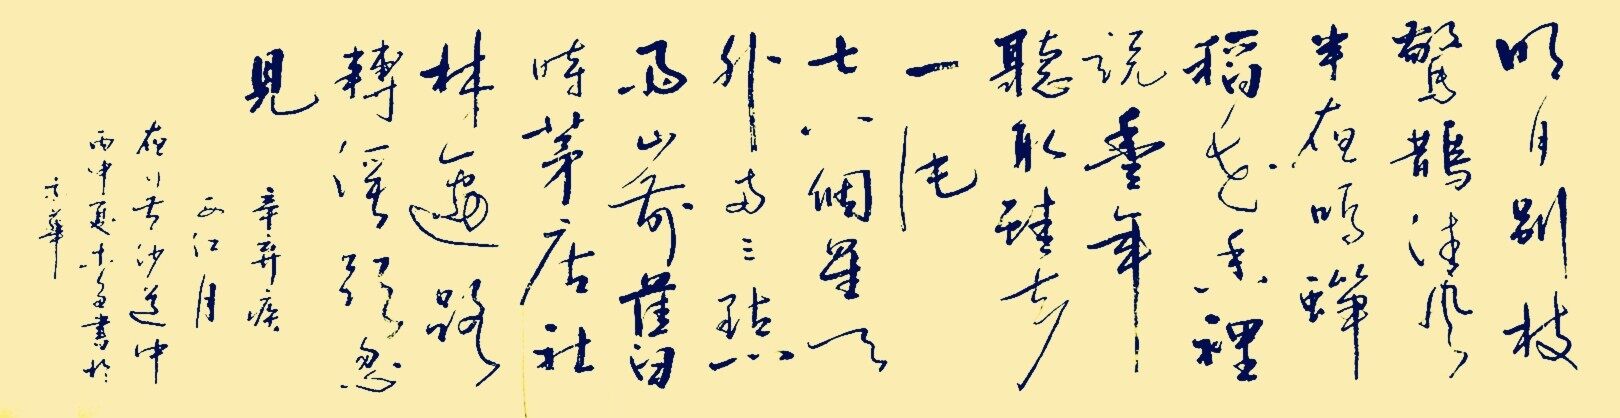 明月别枝
驚鵲清風
半夜鳴蟬
稻花香裡
説豐年
聽取蛙声
一片
七八個星天
外兩三點
雨山前舊
時茅店社
林邊路
轉溪頭忽
見
辛弃疾
西江月
夜行黄沙道中
丙申夏書於
京華